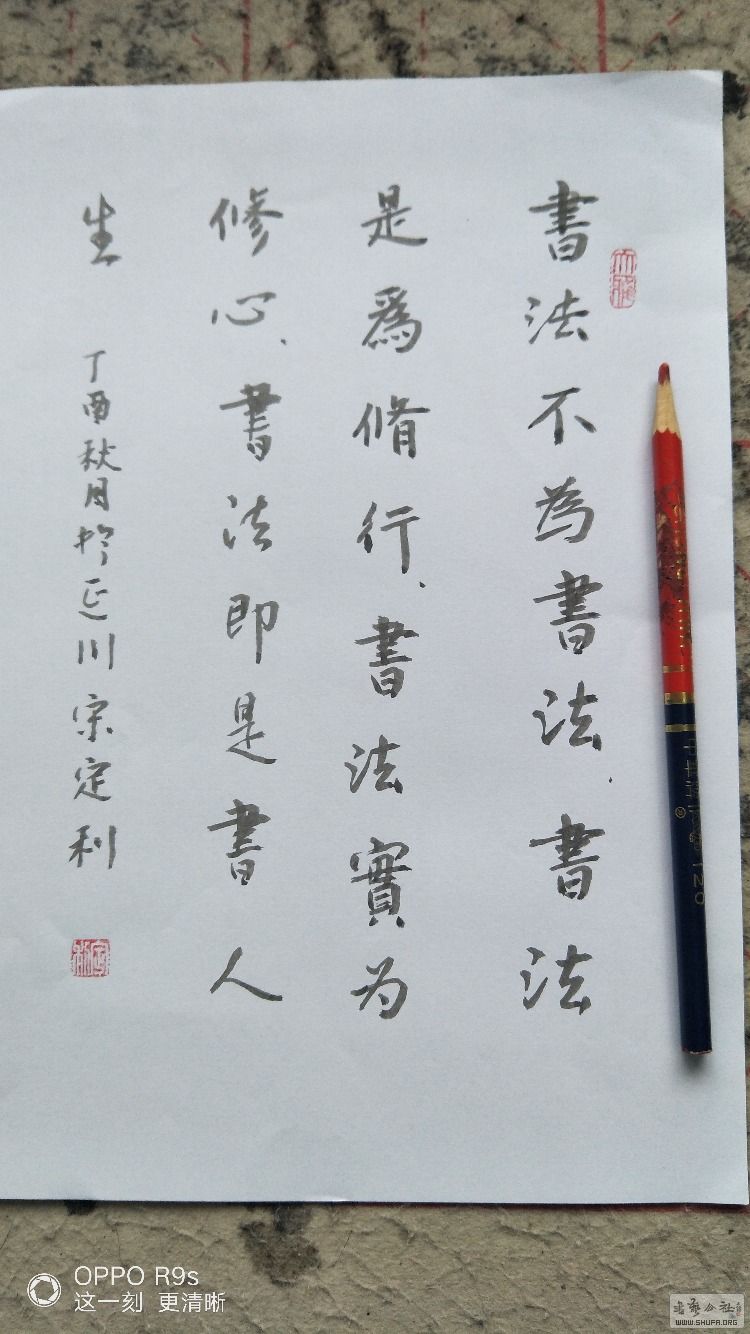 書法不為書法、書法
是爲脩行、書法實为
修心、書法即是書人
生
丁酉秋月於延川宋定利
OPPO R9s
这一刻 更清晰
书艺公社
WWW.SHUFA.ORG